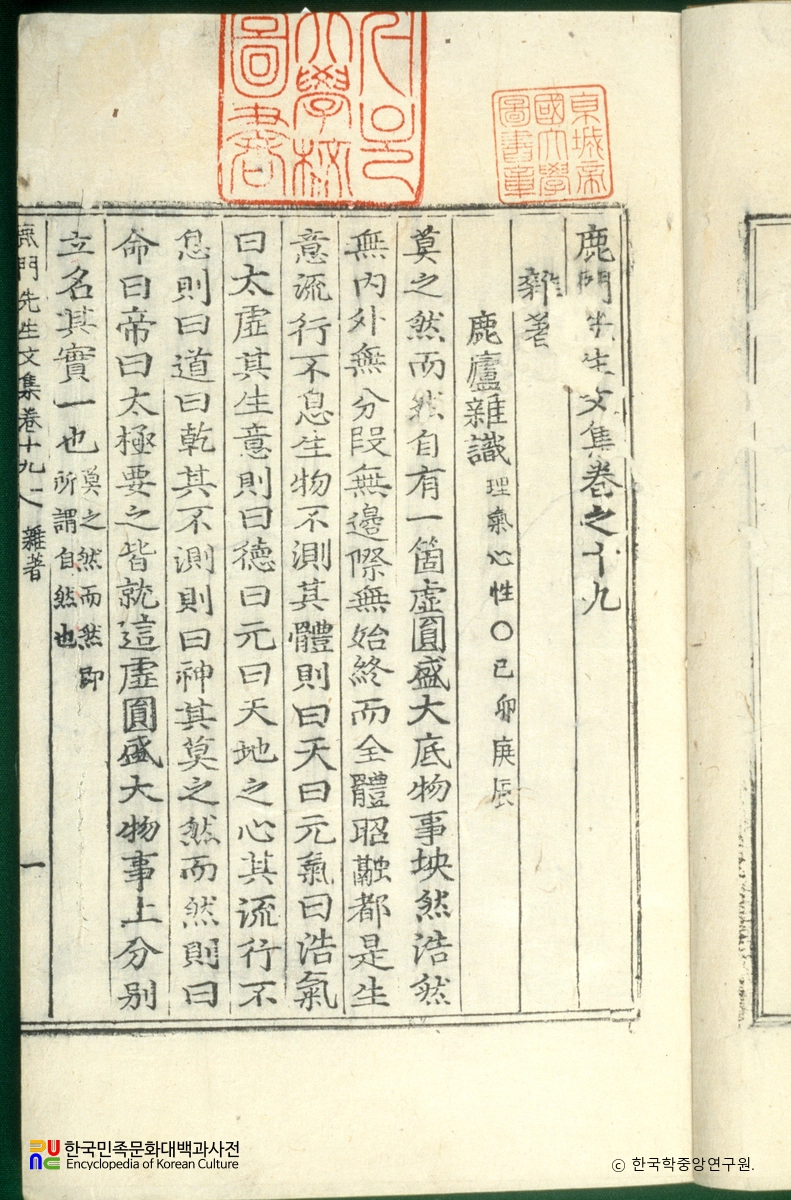 鹿門先生文集卷之十九
雜著
鹿廬雜識 理氣心性○己卯庚辰
莫之然而然自有一箇虛圓盛大底物事坱然浩然
無內外無分段無邊際無始終而全體昭融都是生
意流行不息生物不測其體則曰天曰元氣曰浩氣
曰太虛其生意則曰德曰元曰天地之心其流行不
息則曰道曰乾其不測則曰神其莫之然而然則曰
命曰帝曰太極要之皆就這虛圓盛大物事上分別
立名其實一也 莫之然而然即
所謂自然也
鹿門先生文集卷十九 雜著 一
東城帝
國大學
圖書章
서울
大學校
圖書
한국민족문화대백과사전
Encyclopedia of Korean Culture
© 한국학중앙연구원.